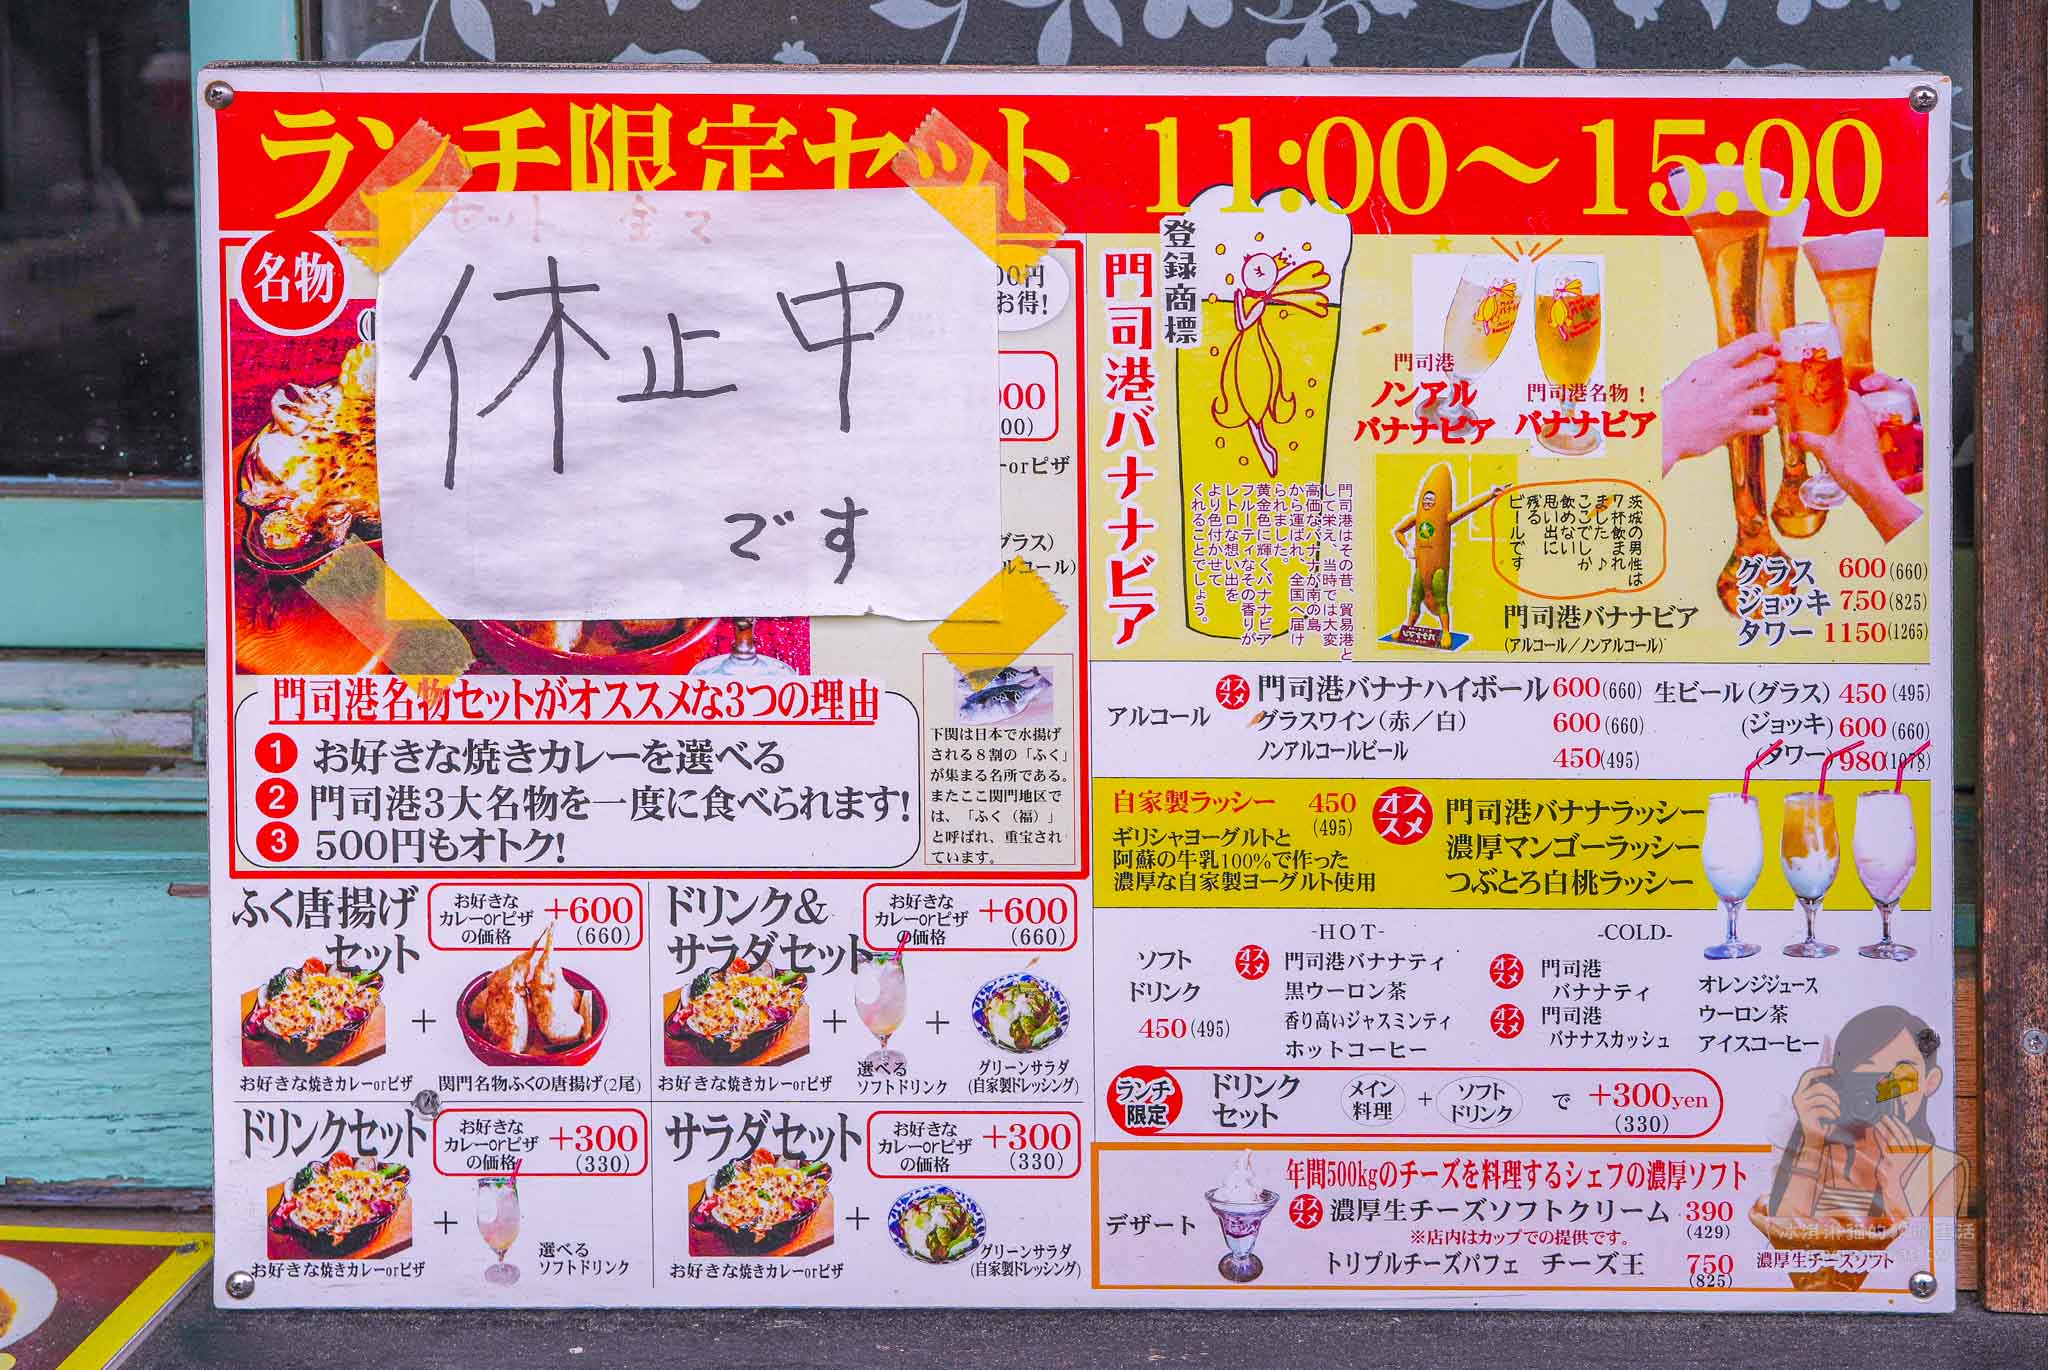 ランチ限定セット 11:00〜15:00
名物
セット 全て
休止中
です
00円
お得!
orピザ
グラス)
門司港名物セットがオススメな3つの理由
1 お好きな焼きカレーを選べる
2 門司港3大名物を一度に食べられます!
3 500円もオトク!
下関は日本で水揚げ
される8割の「ふく」
が集まる名所である。
またここ関門地区で
は、「ふく(福)」
と呼ばれ、重宝され
ています。
ふく唐揚げ
セット
お好きな
カレーorピザ
の価格
+600
(660)
お好きな焼きカレーorピザ
+
関門名物ふくの唐揚げ(2尾)
ドリンク&
サラダセット
お好きな
カレーorピザ
の価格
+600
(660)
お好きな焼きカレーorピザ
+
選べる
ソフトドリンク
+
グリーンサラダ
(自家製ドレッシング)
ドリンクセット
お好きな
カレーorピザ
の価格
+300
(330)
お好きな焼きカレーorピザ
+
選べる
ソフトドリンク
サラダセット
お好きな
カレーorピザ
の価格
+300
(330)
お好きな焼きカレーorピザ
+
グリーンサラダ
(自家製ドレッシング)
門司港バナナビア
登録商標
門司港はその昔、貿易港と
して栄え、当時では大変
高価なバナナが南の島
から運ばれ、全国へ届け
られました。
黄金色に輝くバナナビア
フルーティなその香りが
レトロな想い出を
より色付かせて
くれることでしょう。
門司港
ノンアル
バナナビア
門司港名物!
バナナビア
茨城の男性は
7杯飲まれ
ました♪
ここでしか
飲めない
思い出に
残る
ビールです
門司港バナナビア
(アルコール/ノンアルコール)
グラス 600(660)
ジョッキ 750(825)
タワー 1150(1265)
アルコール
オススメ
門司港バナナハイボール 600(660)
グラスワイン(赤/白) 600(660)
ノンアルコールビール 450(495)
生ビール(グラス) 450(495)
(ジョッキ) 600(660)
(タワー) 980(1078)
自家製ラッシー 450
(495)
ギリシャヨーグルトと
阿蘇の牛乳100%で作った
濃厚な自家製ヨーグルト使用
オススメ
門司港バナナラッシー
濃厚マンゴーラッシー
つぶとろ白桃ラッシー
ソフト
ドリンク
450(495)
-HOT-
オススメ
門司港バナナティ
黒ウーロン茶
香り高いジャスミンティ
ホットコーヒー
-COLD-
オススメ
門司港
バナナティ
オススメ
門司港
バナナスカッシュ
オレンジジュース
ウーロン茶
アイスコーヒー
ランチ
限定
ドリンク
セット
メイン
料理
+
ソフト
ドリンク
で +300yen
(330)
デザート
年間500kgのチーズを料理するシェフの濃厚ソフト
オススメ
濃厚生チーズソフトクリーム 390
(429)
※店内はカップでの提供です。
トリプルチーズパフェ チーズ王 750
(825)
濃厚生チーズソフト